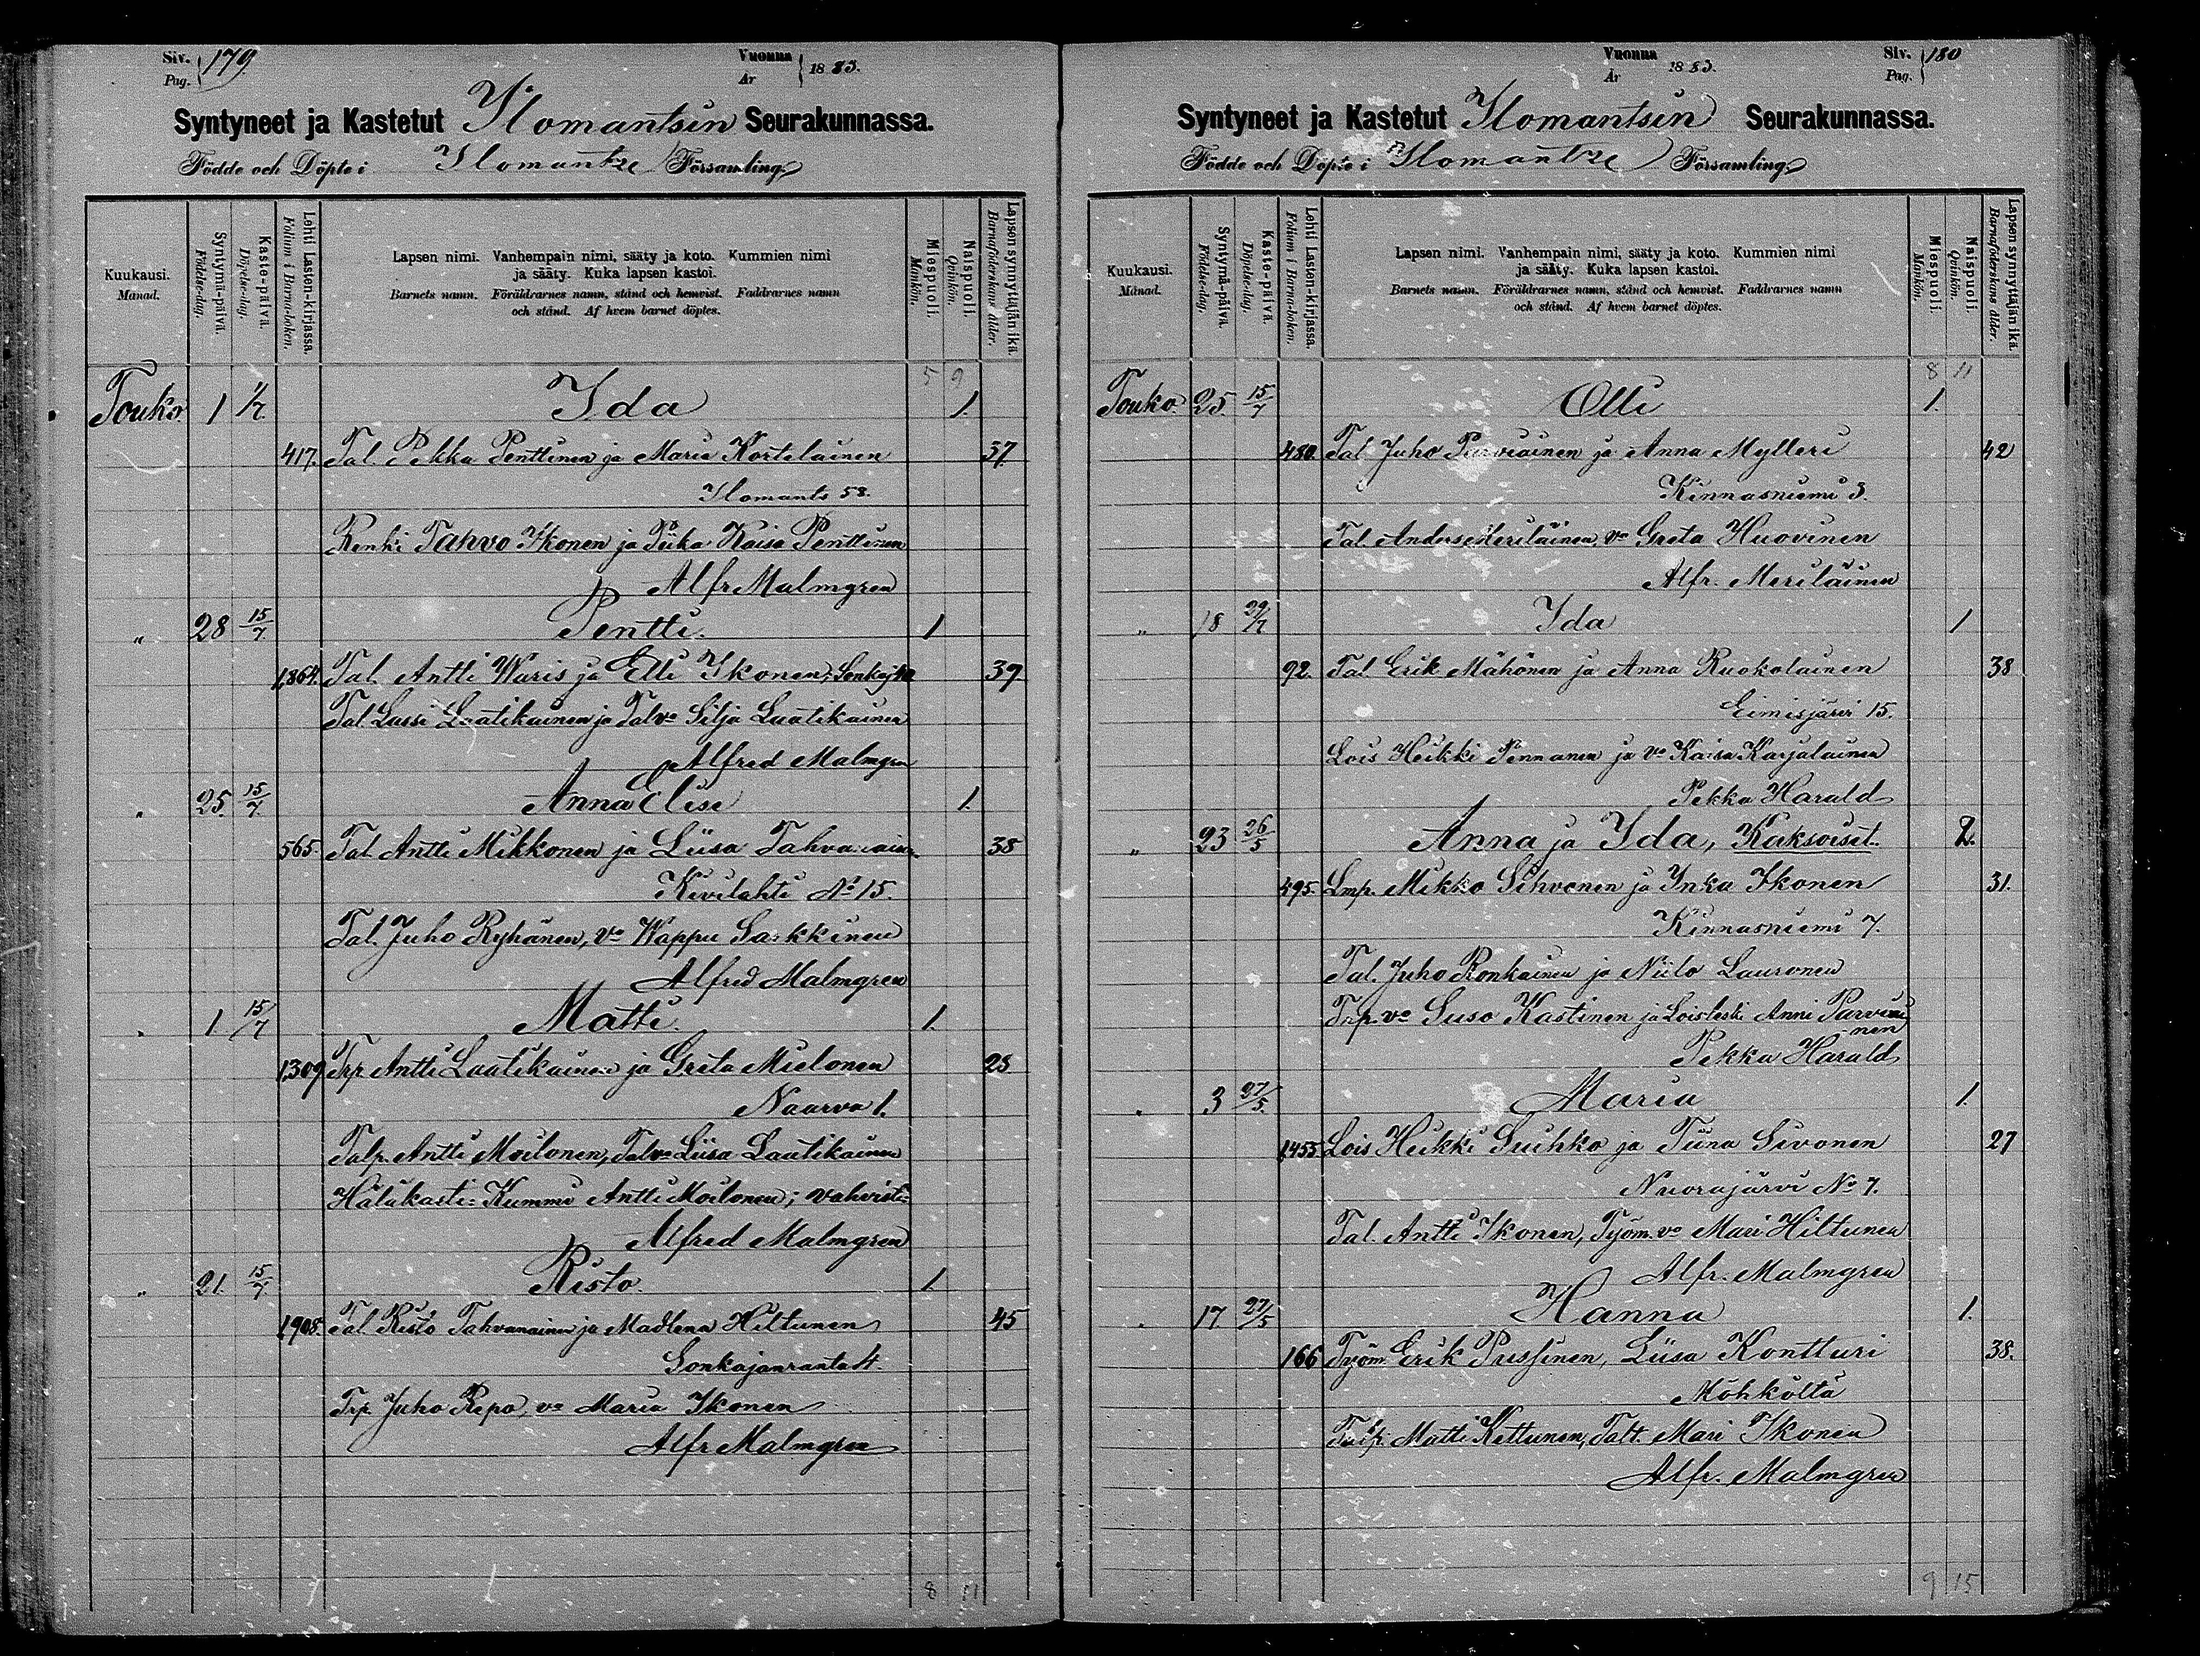 Siv. Pag. 179.
Vuonna År 1883.
Syntyneet ja Kastetut Ilomantsin Seurakunnassa.
Födde och Döpte i Ilomantze Församling.
Kuukausi. Månad.
Syntymä-päivä. Födelse-dag.
Kaste-päivä. Döpelse-dag.
Lehti Lasten-kirjassa. Folium i Barna-boken.
Lapsen nimi. Vanhempain nimi, sääty ja koto. Kummien nimi
ja sääty. Kuka lapsen kastoi.
Barnets namn. Föräldrarnes namn, stånd och hemvist. Faddrarnes namn
och stånd. Af hvem barnet döptes.
Miespuoli. Mankön.
Naispuoli. Qvinkön.
Lapsen synnyttäjän ikä. Barnaföderskans ålder.
5 9
Touko. 1 1/7. Ida 1.
417. Tal. Pekka Penttinen ja Maria Kortelainen 37.
Ilomants 58.
Renki Tahvo Ikonen ja Piika Kaisa Penttinen
Alfr Malmgren
" 28 15/7 Pentti. 1
1,864. Tal. Antti Waris ja Elli Ikonen, 39
Tal. Lassi Laatikainen ja Talva Silja Laatikainen
Alfred Malmgren
" 25. 15/7. Anna Elise 1.
565. Tal. Antti Mikkonen ja Liisa Tahvanainen 38
Kivilahti No 15.
Tal. Juho Ryhänen, va Wappu Sarkkinen
Alfred Malmgren
" 1. 15/7 Matti. 1.
1,309 Trp. Antti Laatikainen ja Greta Mielonen 25
Naarva 1.
Talp. Antti Moilonen, Talva Liisa Laatikainen
Hätäkasti= Kummi Antti Moilonen; vahvisti=
Alfred Malmgren
" 21. 15/7. Risto. 1.
1,908. Tal. Risto Tahvanainen ja Madlena Hiltunen 45
Sonkajanranta 4.
Trp. Juho Repo, va Maria Ikonen
Alfr Malmgren
8 11
Vuonna År 1883.
Siv. Pag. 180
Syntyneet ja Kastetut Ilomantsin Seurakunnassa.
Födde och Döpte i Ilomantze Församling.
Kuukausi. Månad.
Syntymä-päivä. Födelse-dag.
Kaste-päivä. Döpelse-dag.
Lehti Lasten-kirjassa. Folium i Barna-boken.
Lapsen nimi. Vanhempain nimi, sääty ja koto. Kummien nimi
ja sääty. Kuka lapsen kastoi.
Barnets namn. Föräldrarnes namn, stånd och hemvist. Faddrarnes namn
och stånd. Af hvem barnet döptes.
Miespuoli. Mankön.
Naispuoli. Qvinkön.
Lapsen synnyttäjän ikä. Barnaföderskans ålder.
8 11
Touko. 25. 15/7 Olli 1.
480. Tal. Juho Parviainen ja Anna Mylleri 42
Kinnasniemi 3.
Tal. Anders Meriläinen, va Greta Huovinen
Alfr. Meriläinen
" 18 29/7 Ida 1
92. Tal. Erik Mähönen ja Anna Ruokolainen 38
Eimisjärvi 15.
Lois Heikki Pennanen ja va Kaisa Karjalainen
Pekka Harald
" 23 26/5 Anna ja Ida, Kaksoiset. 2.
495. Lmp. Mikko Sihvonen ja Inka Ikonen 31.
Kinnasniemi 7.
Tal. Juho Ronkainen ja Niilo Lauronen
Trp. va Suso Kastinen ja Loisleski Anni Parviai
nen
Pekka Harald
" 3 27/5. Maria 1.
1,455 Lois Heikki Suihko ja Tiina Sivonen 27
Nuorajärvi No 7.
Tal. Antti Ikonen, Työm. va Mari Hiltunen
Alfr. Malmgren
" 17 27/5 Hanna 1.
166 Työm. Erik Pussinen, Liisa Kontturi 38.
Möhköltä
Talp. Matti Kettunen, Talt. Mari Ikonen
Alfr. Malmgren
9 15